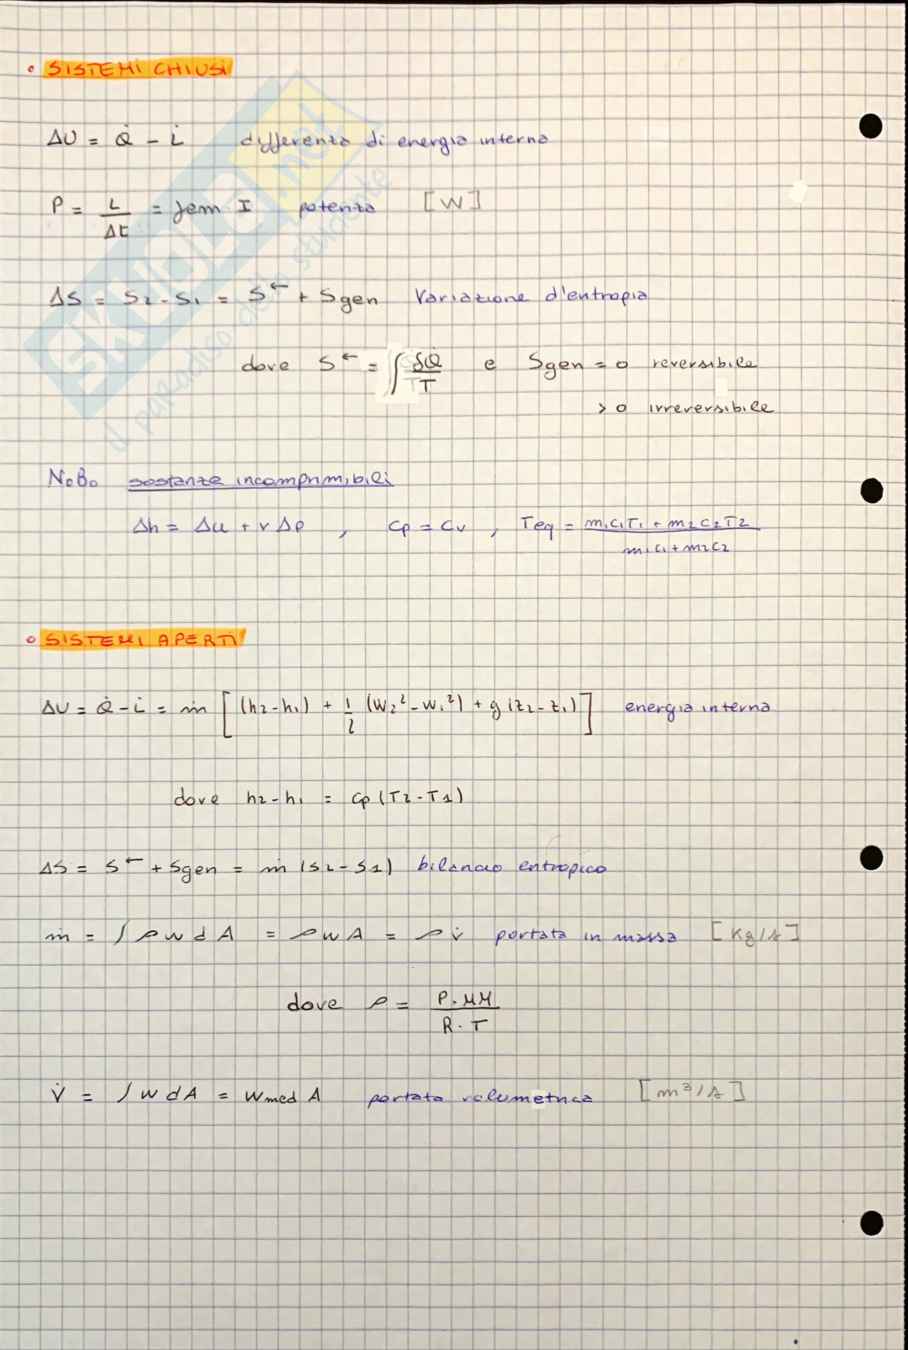 • SISTEMI CHIUSI
ΔU = Q̇ - L̇ differenza di energia interna
P = L/Δt = fem I potenza [W]
ΔS = S2 - S1 = S← + Sgen Variazione d'entropia
dove S← = ∫ δQ̇/T e Sgen = 0 reversibile
> 0 irreversibile
N.B. sostanze incomprimibili
Δh = Δu + vΔp , cp = cv , Teq = m1c1T1 + m2c2T2 / m1c1 + m2c2
• SISTEMI APERTI
ΔU = Q̇ - L̇ = ṁ [(h2-h1) + 1/2 (w2² - w1²) + g(z2-z1)] energia interna
dove h2-h1 = cp (T2-T1)
ΔS = S← + Sgen = ṁ (s2-s1) bilancio entropico
ṁ = ∫ ρ w d A = ρ w A = ρ v̇ portata in massa [kg/s]
dove ρ = P·MM / R·T
V̇ = ∫ w dA = wmed A portata volumetrica [m³/s]
SKUOLA.net
il paradiso dello studente